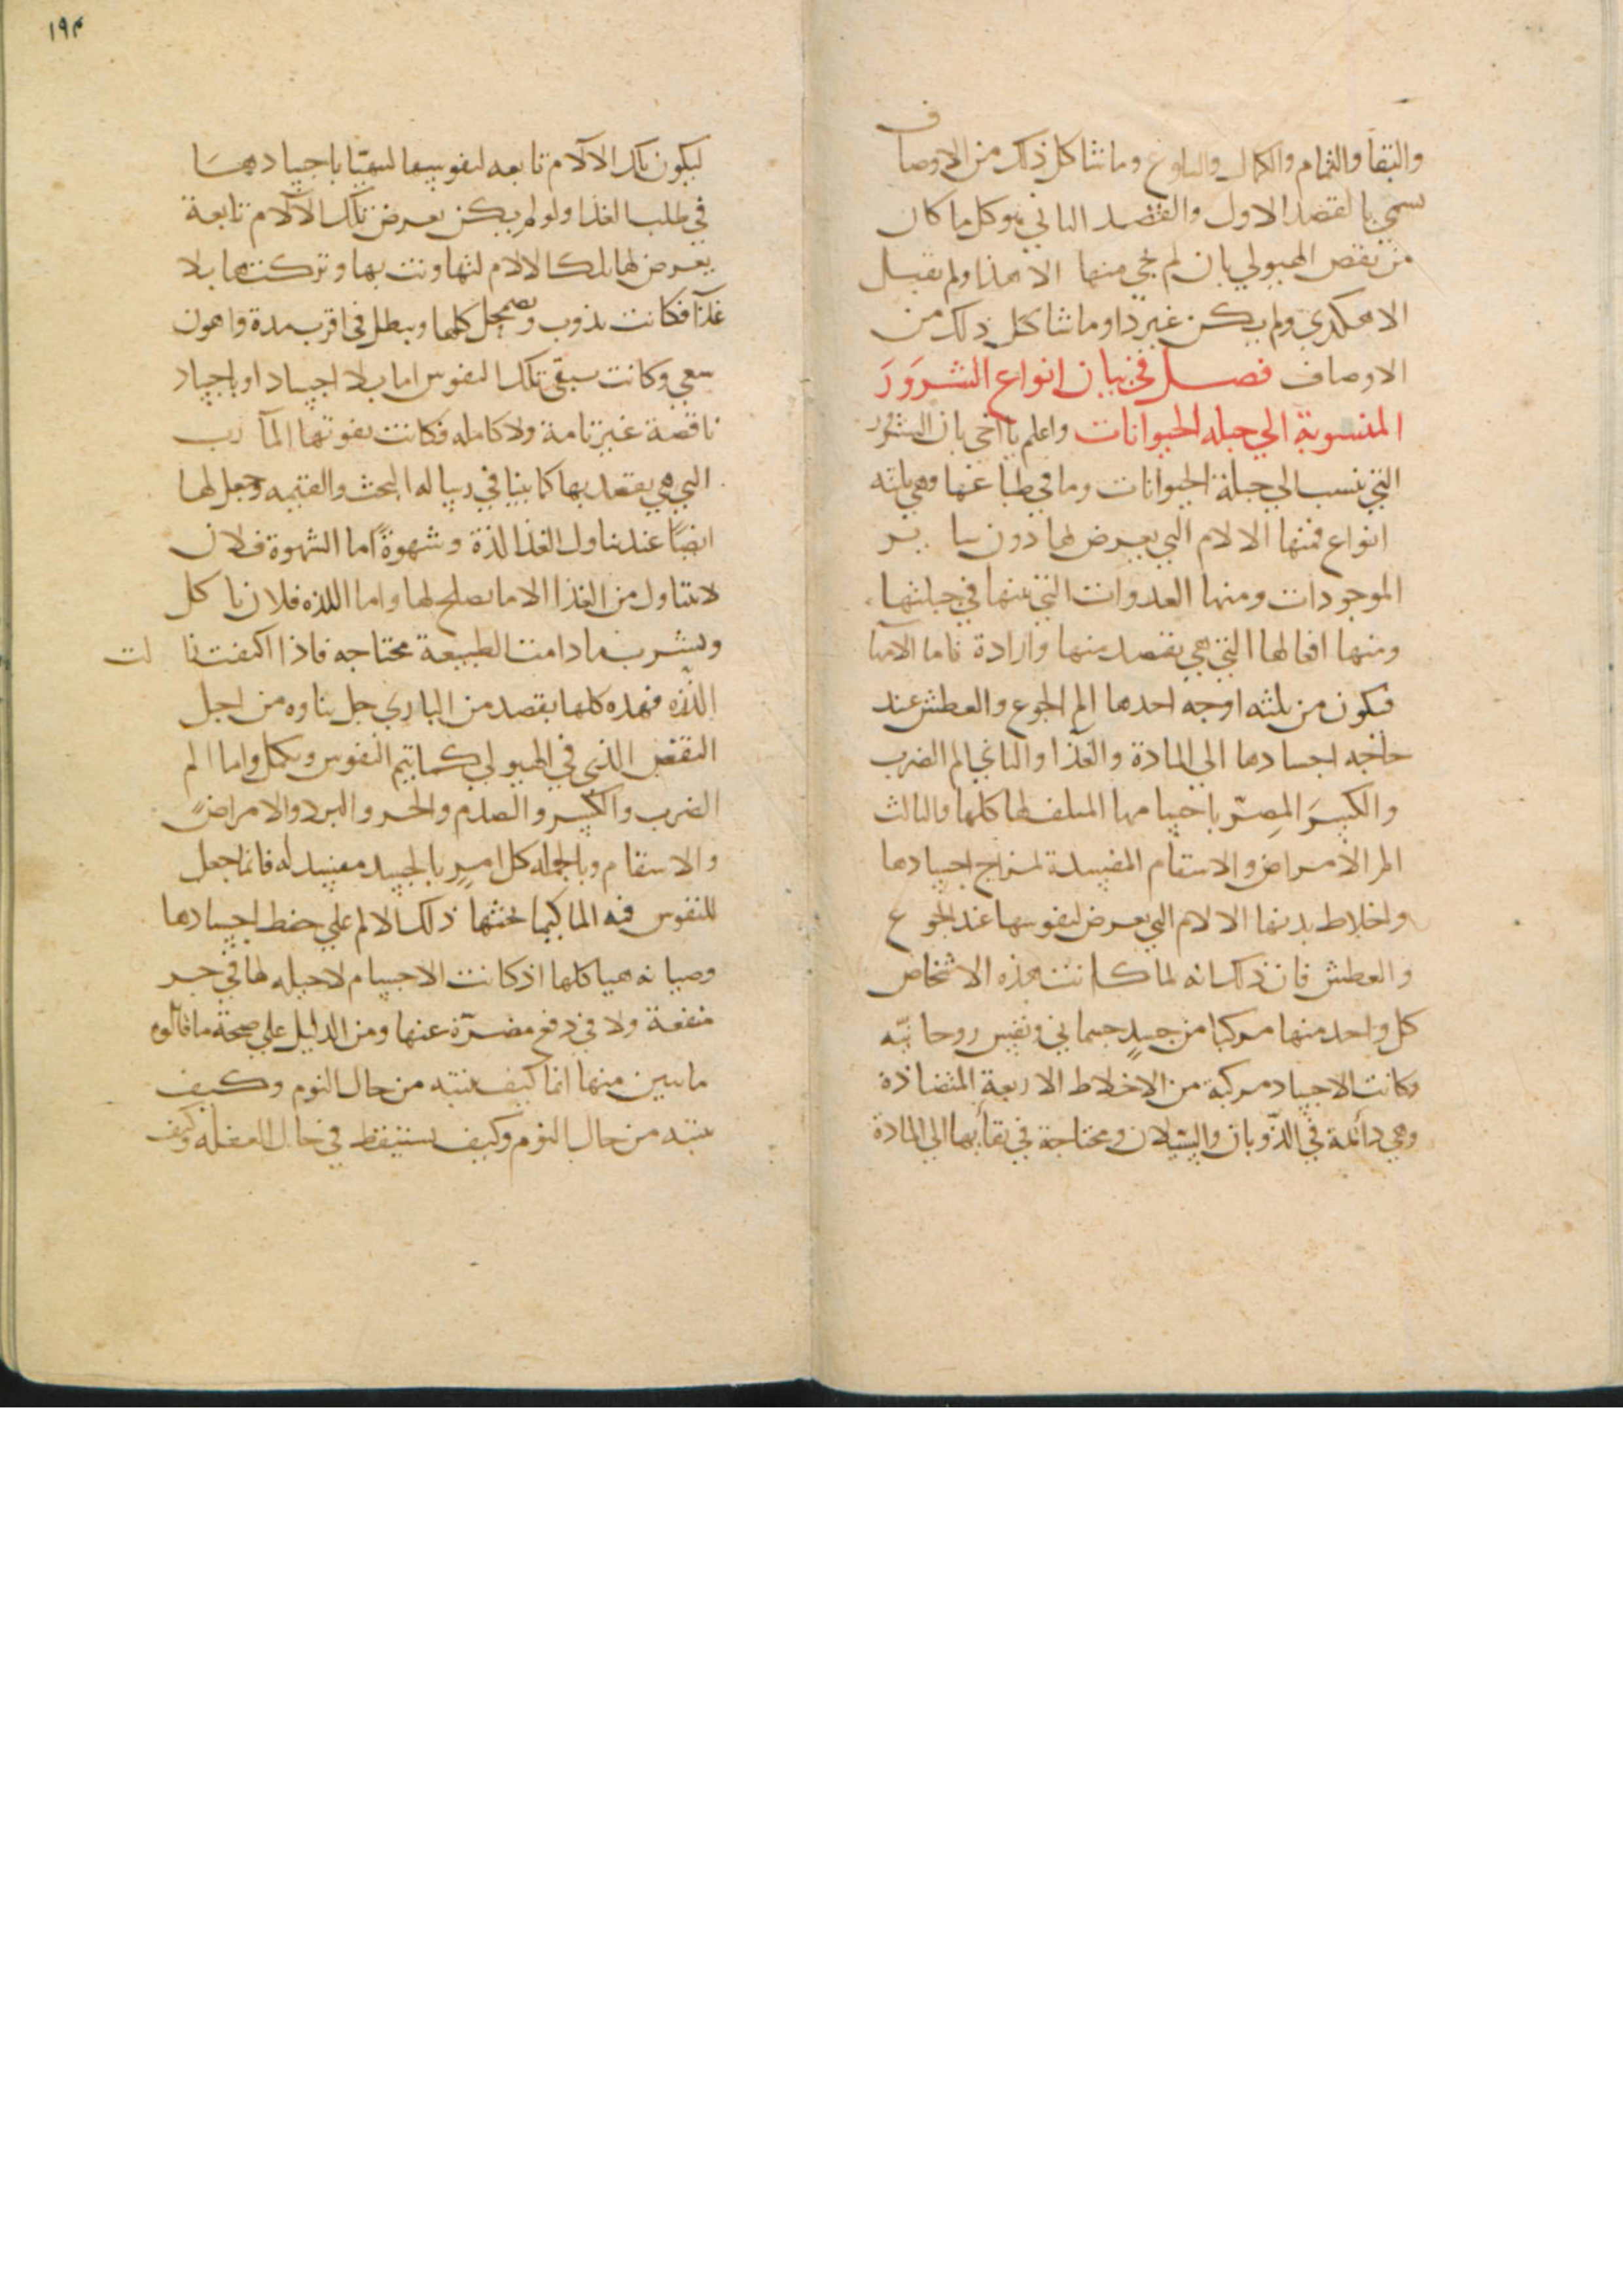 والبقا والتمام والكمال والبلوغ وما شاكل ذلك من الاوصاف
يسمي بالقصد الاول والقصد الثاني هو كل ما كان
من نقص الهيولي بان لم يجي منها الا هذا ولم تقبل
الا هكذي ولم يكن غير ذا وما شاكل ذلك من
الاوصاف فصل في بيان انواع الشرور
المنسوبة الي جبله الحيوانات واعلم يا اخي بان الشرور
التي تنسب الي جبلة الحيوانات وما في طباعها وهي ثلثه
انواع فمنها الالام التي يعرض لها دون ساير
الموجودات ومنها العدوات التي بينها في جبلتها
ومنها افعالها التي هي بقصد منها وارادة فاما الآمها
فيكون من ثلثه اوجه احدها الم الجوع والعطش عند
حاجه اجسادها الي المادة والغذا والثاني الم الضرب
والكسر المضر باجسامها المتلف لها كلها والثالث
الم الامراض والاسقام المفسدة لمزاج اجسادها
واخلاط بدنها الالام التي يعرض لنفوسها عند الجوع
والعطش فان ذلك انه لما كانت هذه الاشخاص
كل واحد منها مركبا من جسد جسماني ونفس روحانيّه
وكانت الاجساد مركبة من الاخلاط الاربعة المتضادة
وهي دائمة في الذّوبان والسيلان ومحتاجة في بقأيها الي المادة
١٩٣
ليكون تلك الآلام تابعه لنفوسها لسعيها باجسادها
في طلب الغذا ولو لم يكن يعرض تلك الآلام تابعة
يعرض لها تلك الالام لتهاونت بها وتركتها بلا
غذآ فكانت يذوب ويضمحل كلها ويبطل في اقرب مدة واهون
سعي وكانت يبقى تلك النفوس اما بلا اجساد او باجساد
ناقصة غير تامة ولا كامله فكانت يفوتها المآرب
التي هي يقصد بها كما بينا في رساله البعث والقيمه وجعل لها
ايضًا عند تناول الغذا لذة وشهوةً اما الشهوة فلان
لا تتناول من الغذا الا ما يصلح لها واما اللذه فلان ياكل
ويشرب ما دامت الطبيعة محتاجه فاذا اكتفت زالت
اللّذه فهذه كلها بقصد من الباري جل ثناوه من اجل
النقص الذي في الهيولي كما يتم النفوس ويكمل واما الم
الضرب والكسر والصدم والحر والبرد والامراض
والاسقام وبالجمله كل امرٍ بالجسد مفسد له فانما جعل
للنفوس فيه الما كيما يحثها ذلك الالم علي حفظ اجسادها
وصيانه هياكلها اذ كانت الاجسام لا حيله لها في جر
منفعة ولا في دفع مضرّة عنها ومن الدليل علي صحة ما قالوه
ما يتبين منها انها كيف ينتبه من حال النوم وكيف
ينتبه من حال النوم وكيف يستيقظ في حال الغفله وكيف